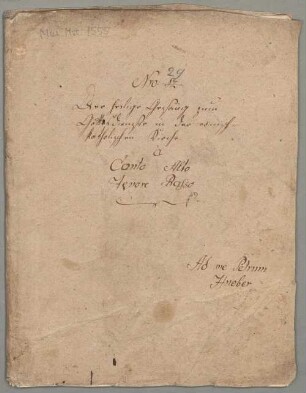 Mus. Mss. 1558
No. 29
Der heilige Gesang zum
Gottesdienste in der römisch-
katholischen Kirche
a
Canto Alto
Tenore Basso
Ad me Petrum
Hueber